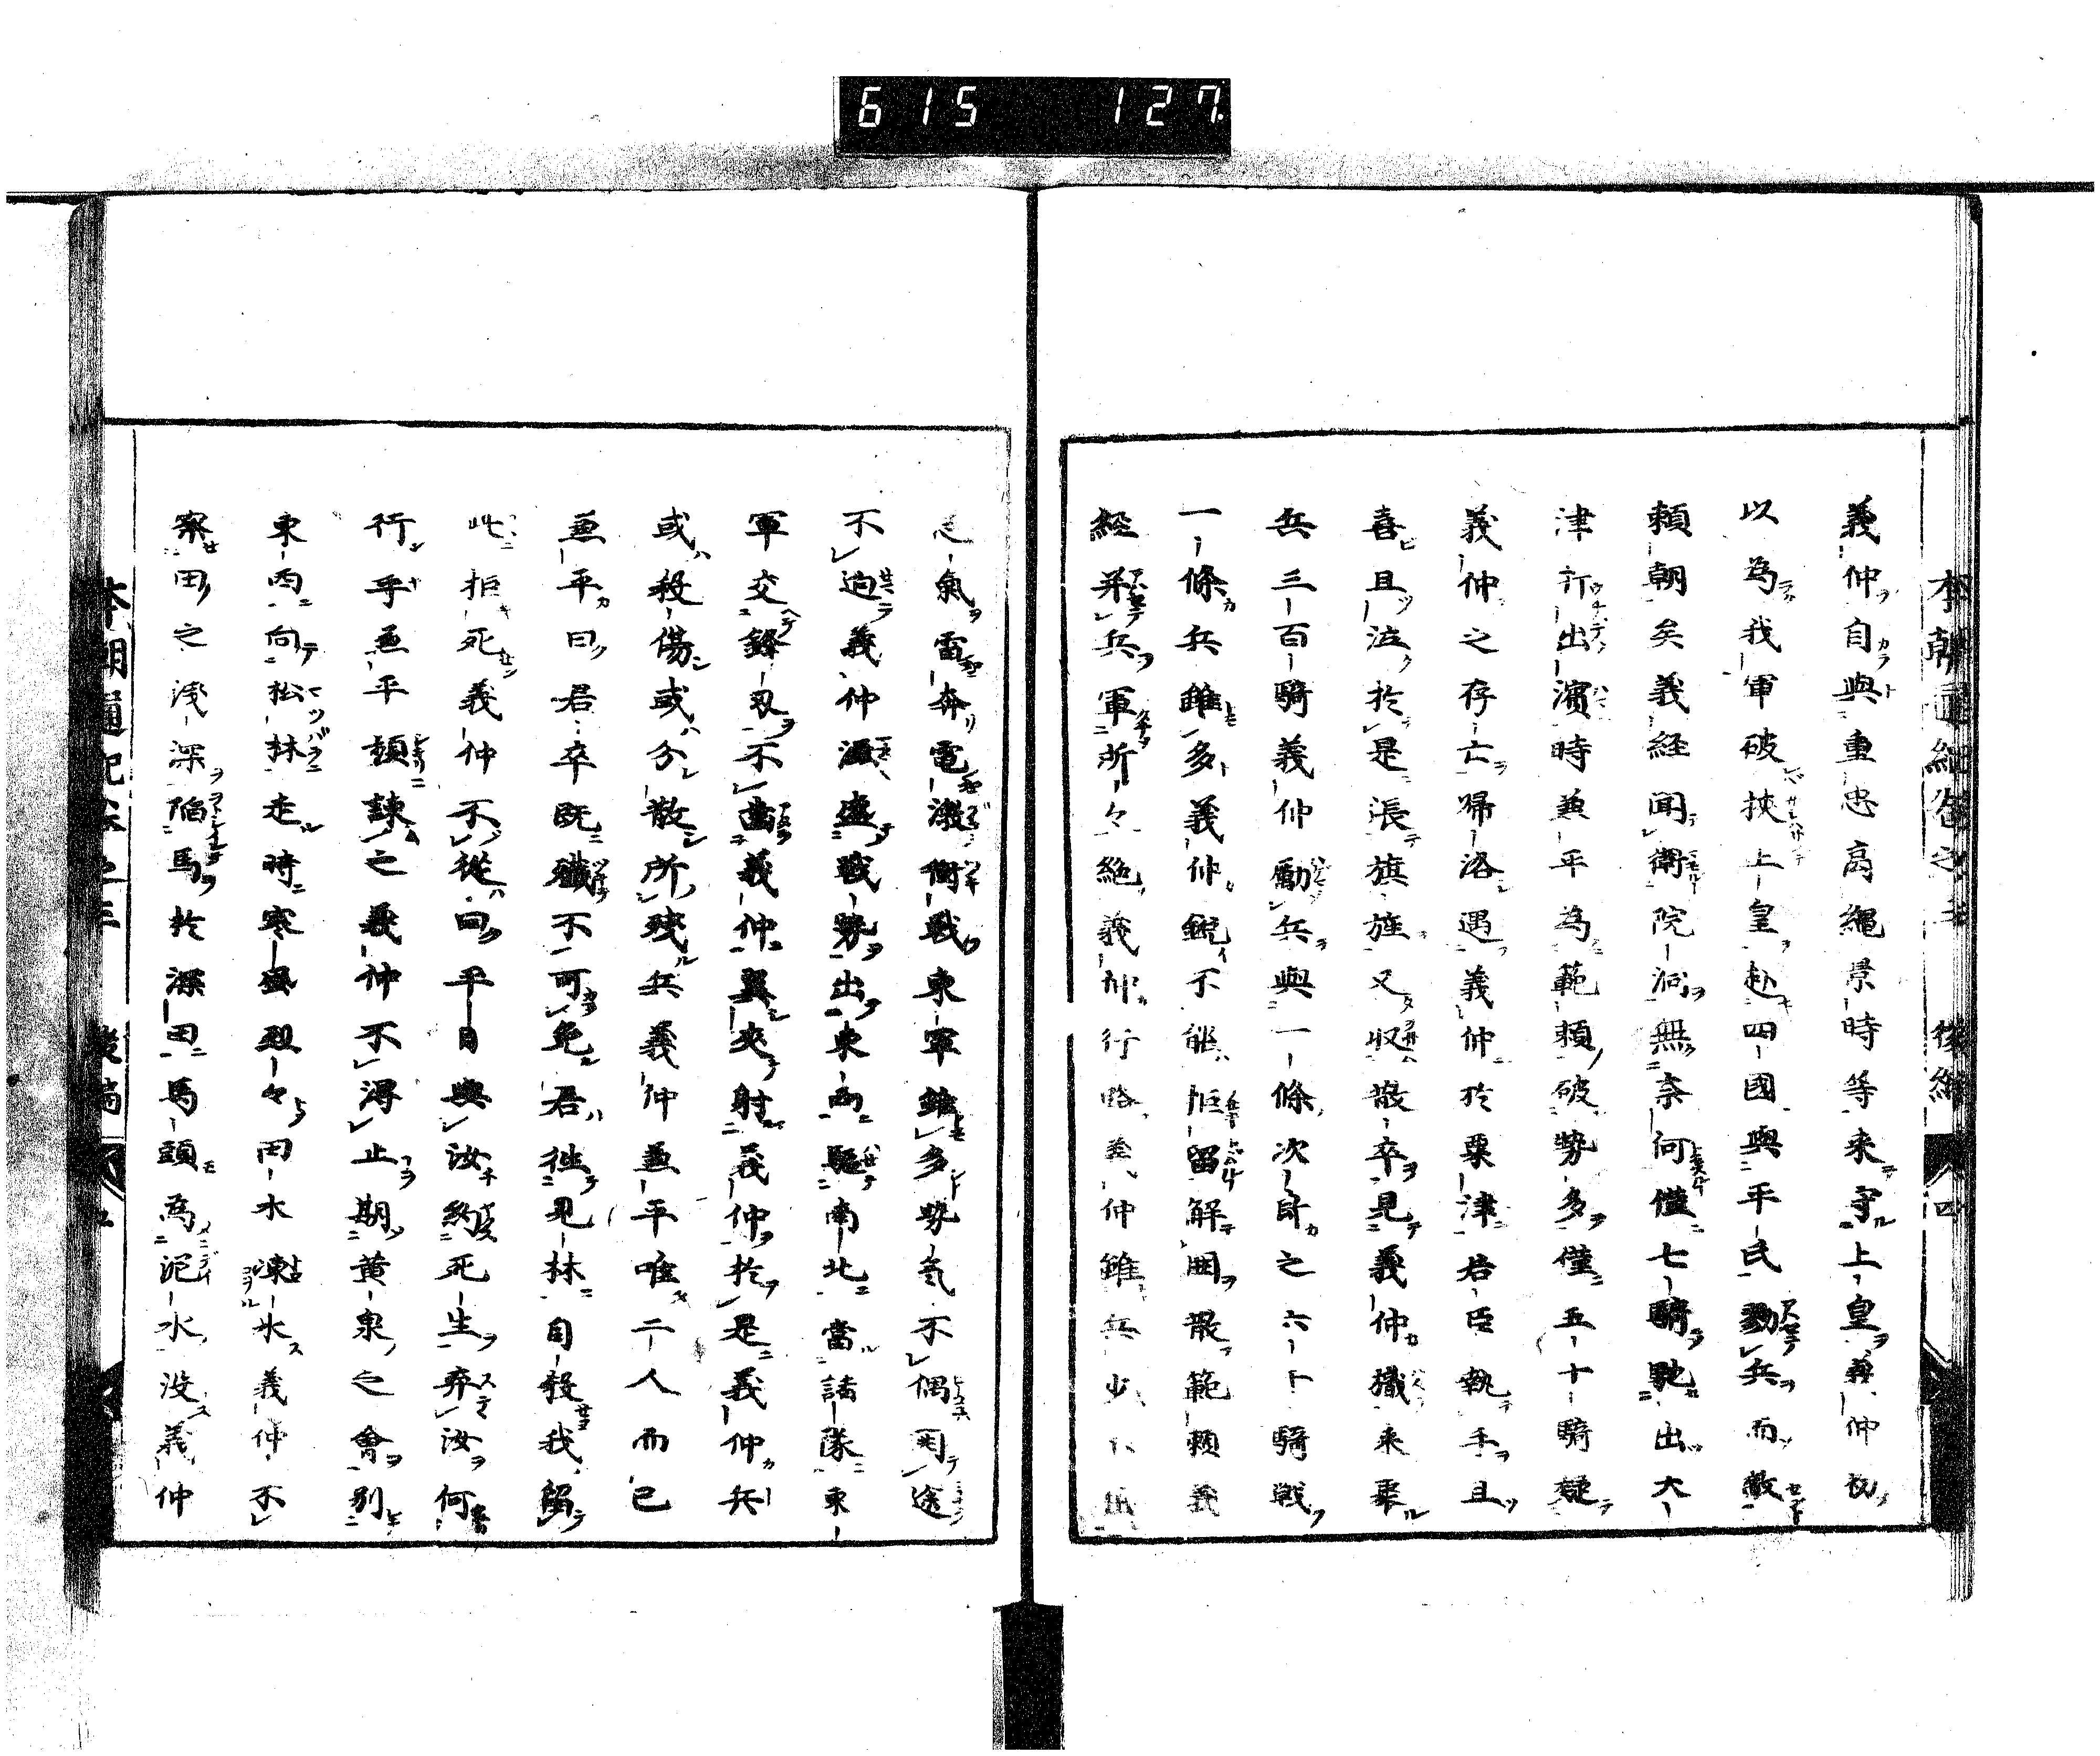 615 127
義仲自與重忠高綱景時等来守上皇義仲初
以為我軍破挾上皇赴四國與平民勠兵而敵
頼朝矣義経聞衛院洞無奈何僅七騎馳出大
津打出濱時兼平為範頼破勢多僅五十騎疑
義仲之存亡帰洛遇義仲於粟津君臣執手且
喜且泣於是張旗旌又収散卒見義仲幟来聚
兵三百騎義仲勵兵與一條次郎之六千騎戦
一條兵雖多義仲鋭不能拒留解囲最範頼義
経并兵軍所々絶義仲行路義仲雖兵少
氣雷奔電激衝戦東軍雖多勢氣不偶因途
不迫義仲盛戦勢出東西駆南北當諸隊東
軍交鋒刄不當義仲翼夾射義仲於是義仲兵
或殺傷或分散所残兵義仲兼平唯二人而已
兼平曰君卒既殲不可免君徃見林自殺我留
此拒死義仲不從曰平日與汝約死生弃汝何
行乎兼平頻諌之義仲不得止期黄泉之會別
東西向松林走時寒風烈々田水凍氷義仲不
察田之浅深陥馬於深田馬頭為泥水没義仲